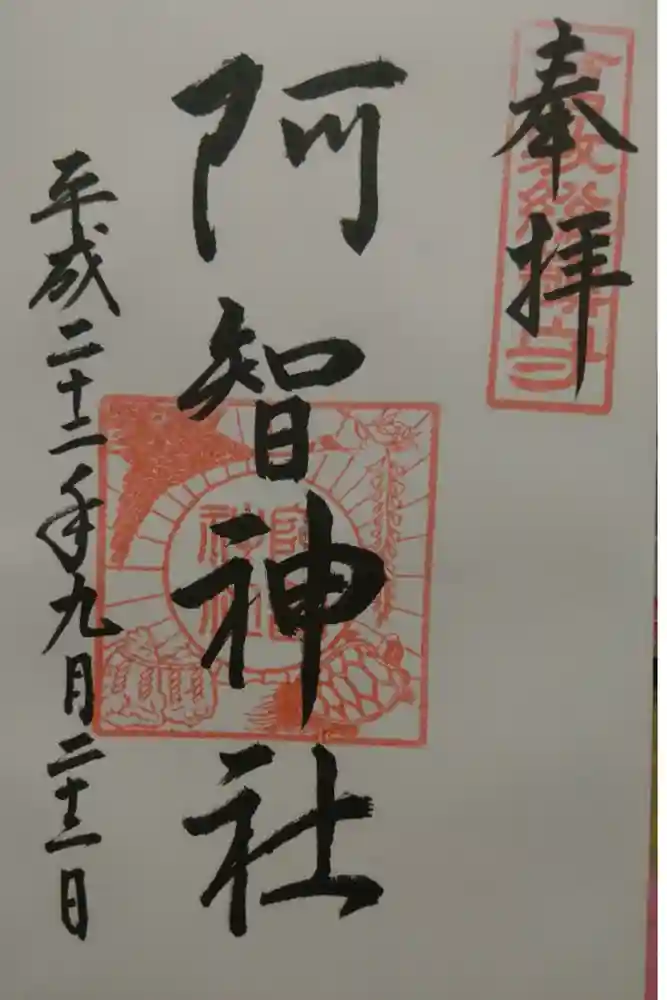 奉拝
阿智神社
平成二十二年九月二十二日
阿智神社